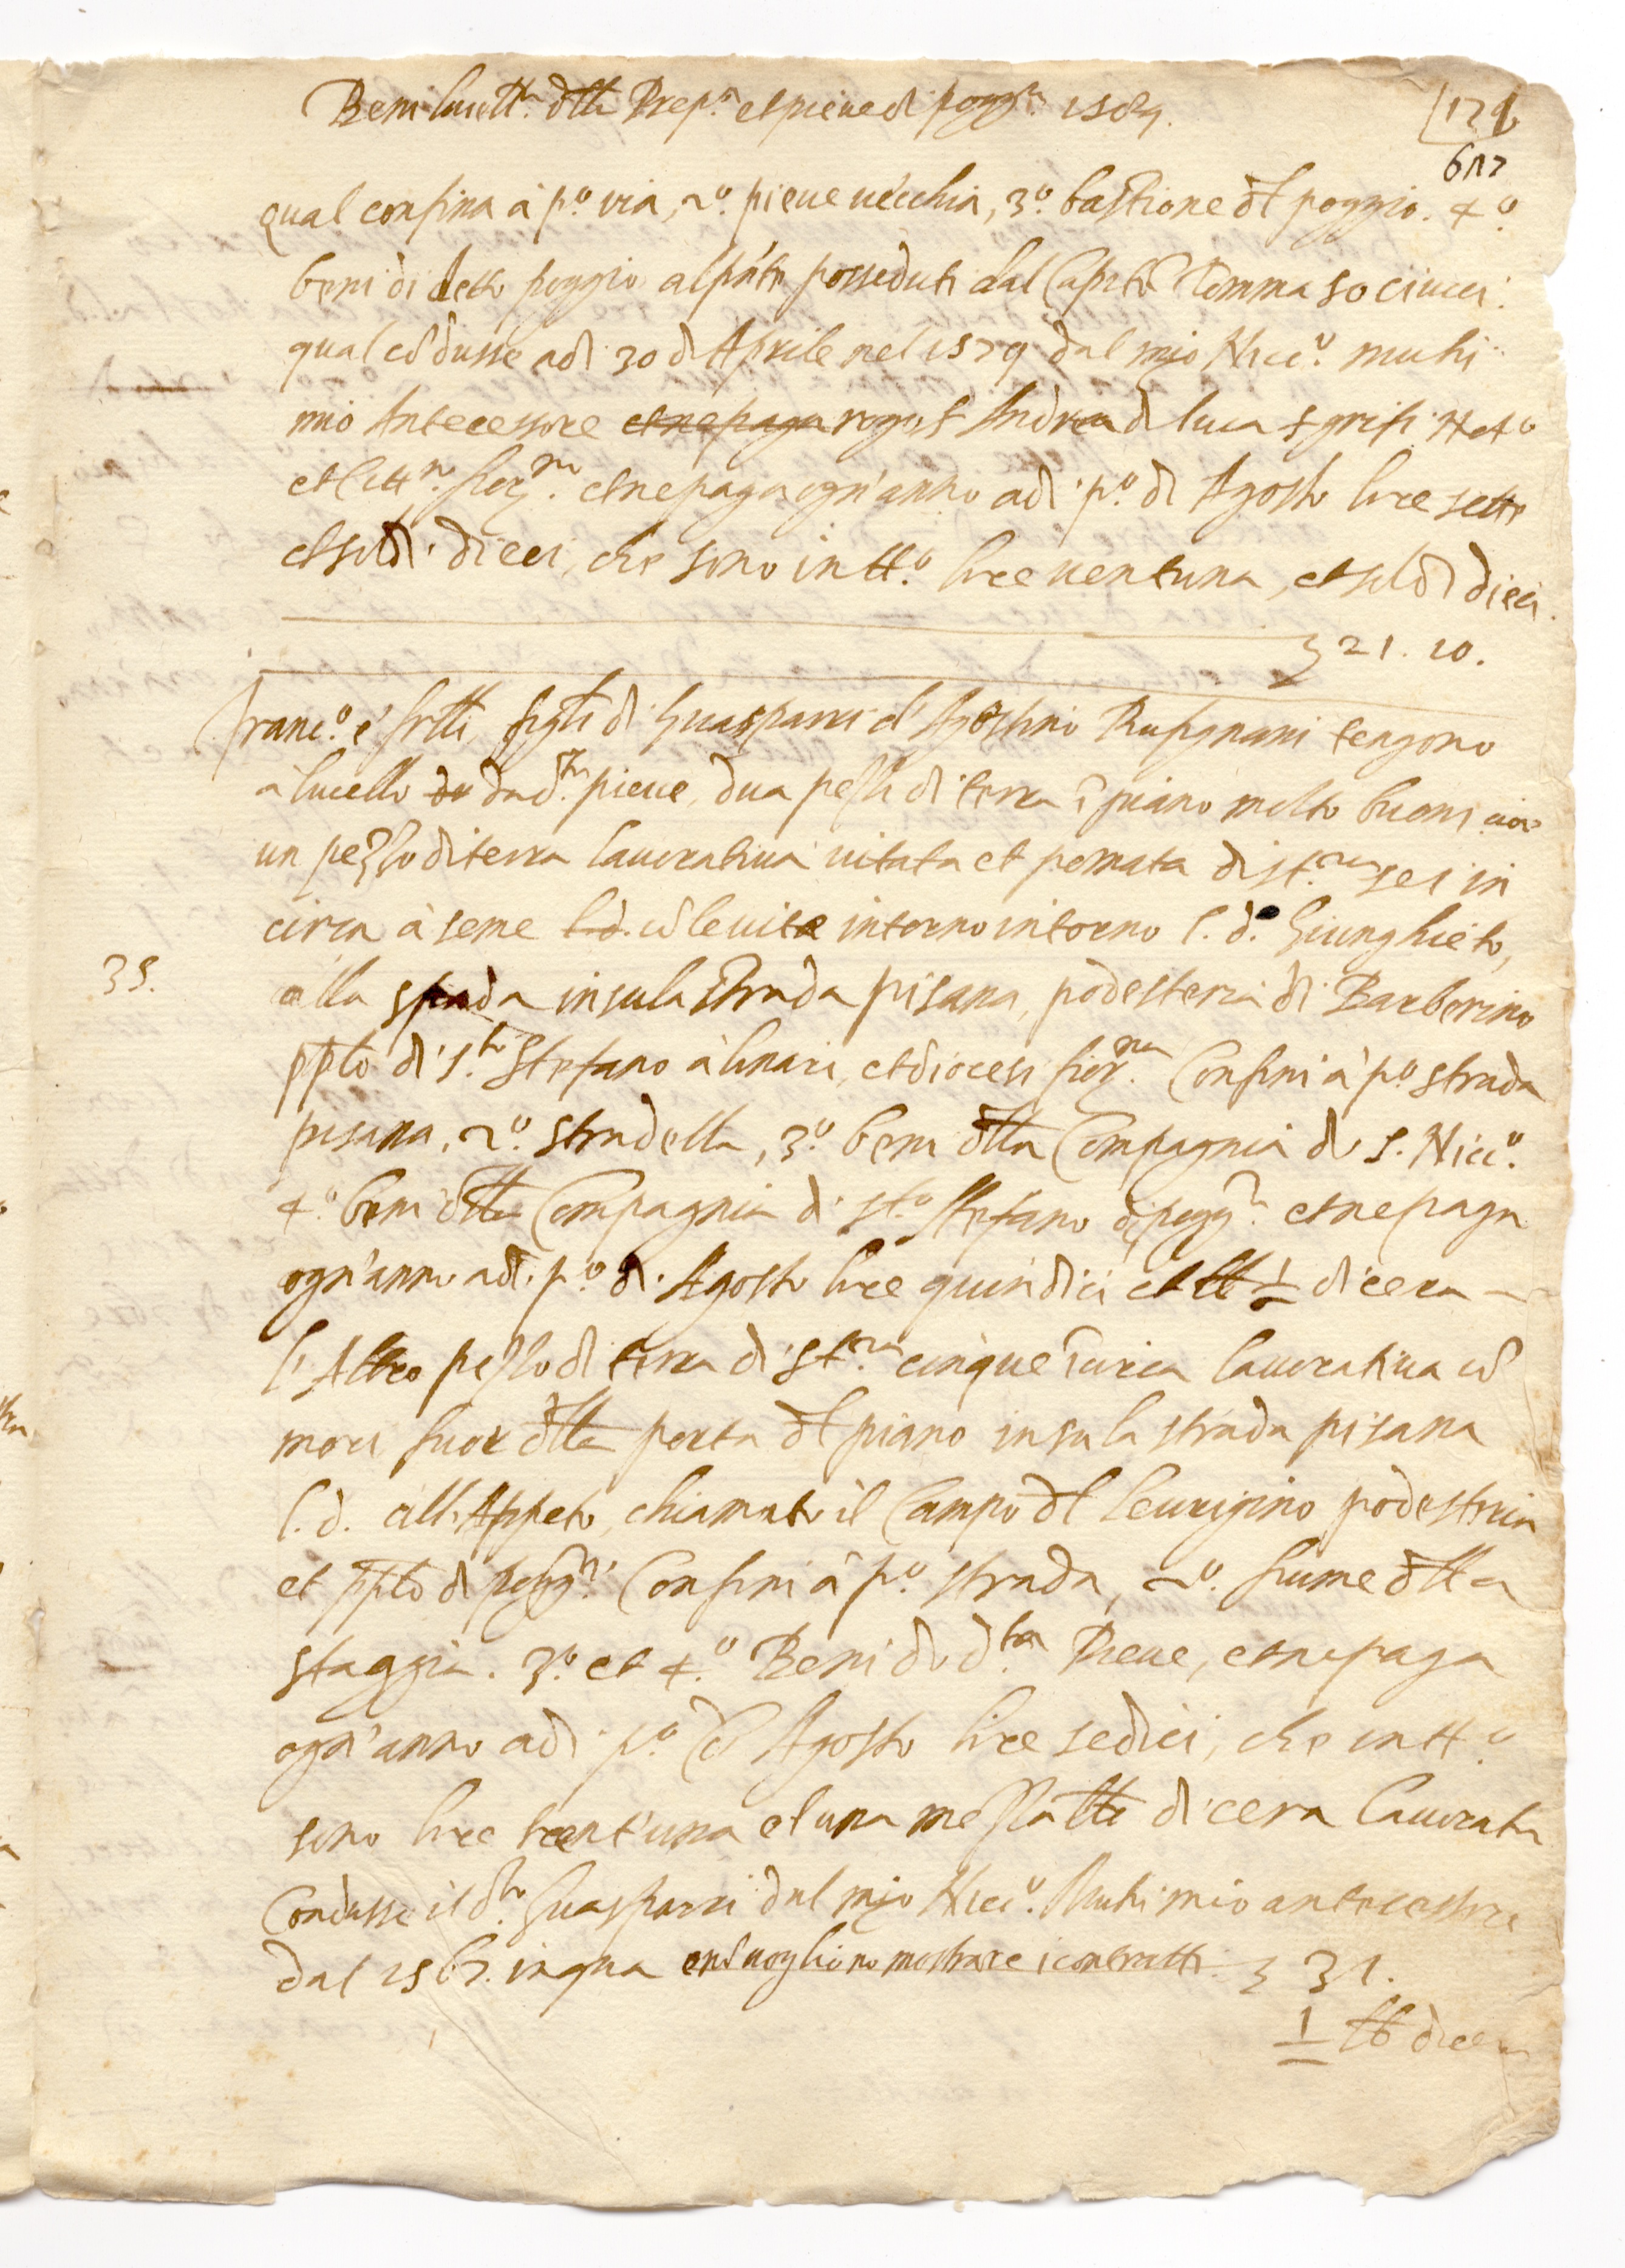 Beni livell.ri dlla Prep.ra et pieve di pogg.si 1584.
129
617
qual confina à p.o via, 2.o pieve vecchia, 3.o bastione dl poggio. 4.o
beni di detto poggio al pñte posseduti dal Capito Tommaso Ciucci
qual cõdusse adi 30 d'Aprile nel 1579 dal mio Nicc.o muhi
mio Antecessore et ne paga rogo s Andrea di luca sgrifi Not.o
et Citt.no fior.no et ne paga ogn'anno adi p.o di Agosto lire sette
et soldi dieci, che sono in tt.o lire ventuna, et soldi dieci
21. 10.
franc.o e' frlli figli di Guasparri d'Agostino Rufignani tengono
a livello da da d.ta pieve, dua pezzi di terra ĩ piano molto buoni cioe
un pezzo di terra lavorativa vitata et pomata di st.ra sei in
circa à seme l.d. cõ le vite intorno intorno l.d. Giunghieto,
35.
alla strada in su la strada pisana, podesteria di Barberino
pplo di S.to Stefano à linari, et diocesi fior.na Confini à p.o strada
pisana, 2.o stradella, 3.o beni dlla Compagnia di S. Nicc.o
4.o beni dlla Compagnia di st.o Stefano di pogg.si et ne paga
ogn'anno adi p.o di Agosto lire quindici et lb 1/2 di cera
l'Altro pezzo di terra di st.ra cinque ĩ circa lavorativa cõ
mori fuor dlla porta dl piano in su la strada pisana
l.d. all'Appeto, chiamato il Campo dl Ceurigino podesteria
et pplo di pogg.si Confini à p.o strada, 2.o fiume dlla
staggia. 3.o et 4.o Beni di d.ta Pieve, et ne paga
ogn'anno adi p.o di Agosto lire sedici, che in tt.o
sono lire trent'una et una mezza lb di cera lavorata
Condusse il d.to Guasparri dal mio Nicc.o Muhi mio antecessore
dal 1567. in qua e nõ vogliono mostrare i contratti 31.
1/2 lb di cera